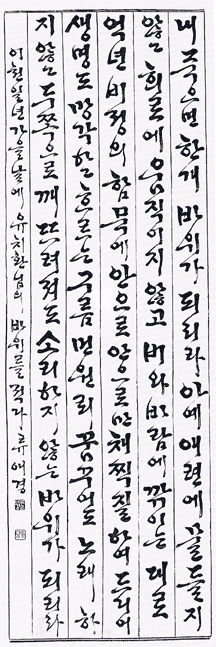 내 죽으면 한개 바위가 되리라 아예 애련에 물들지
않고 희로에 움직이지 않고 비와 바람에 깎이는 대로
억년 비정의 함묵에 안으로 안으로만 채찍질 하여 드디어
생명도 망각하고 흐르는 구름 먼 원뢰 꿈꾸어도 노래 하
지 않고 두쪽으로 깨뜨려져도 소리하지 않는 바위가 되리라
이천일년 가을날에 유치환님의 바위를 적다 류애경